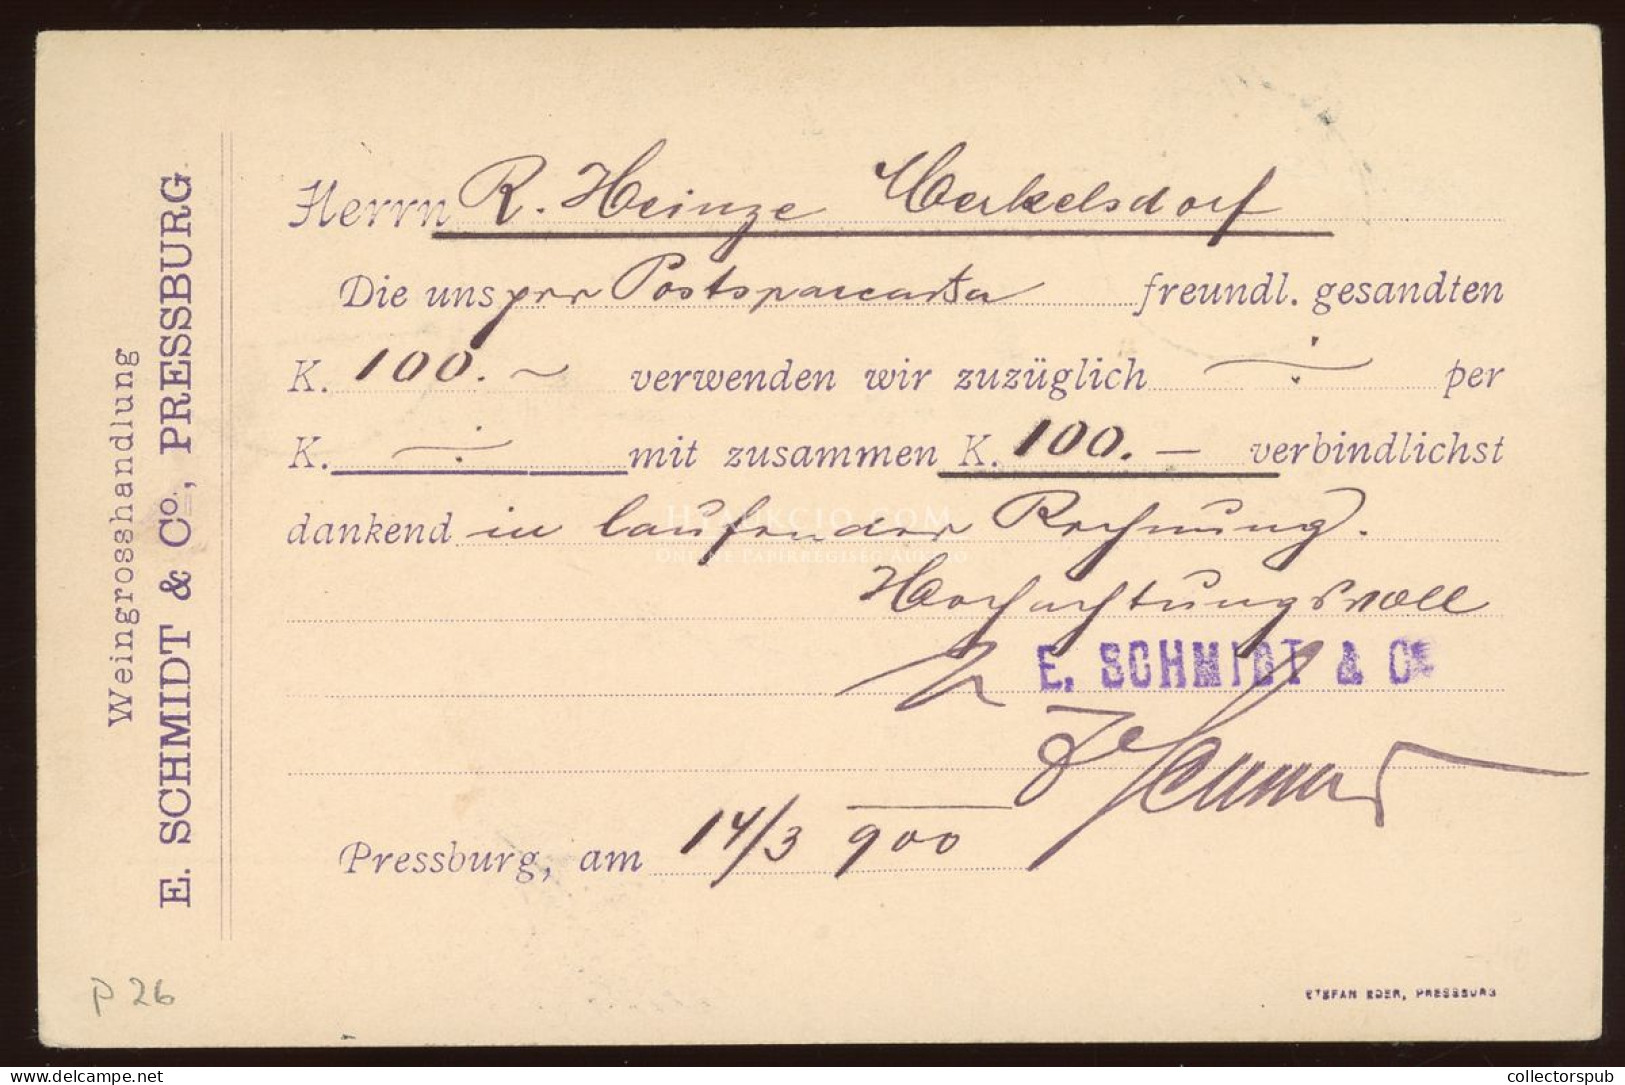 Weingrosshandlung
E. SCHMIDT & Co., PRESSBURG.
Herrn R. Heinze Merkelsdorf
Die uns per Postsparcarta freundl. gesandten
K. 100.~ verwenden wir zuzüglich ÷ per
K. ÷ mit zusammen K. 100.— verbindlichst
dankend in laufender Rechnung.
HTAUKCIO.COM
ONLINE PAPIRREGISEG AUKCIO
Hochachtungsvoll
E. SCHMIDT & Co
Pressburg, am 14/3 900
P 26
STEFAN EDER, PRESSBURG
collectorspub